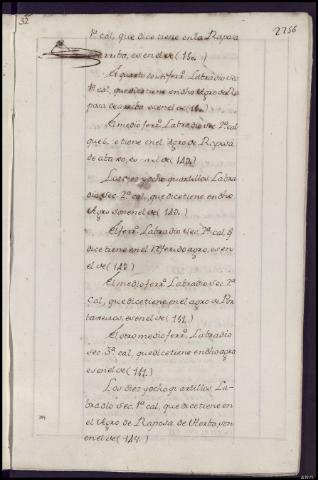 32
2756
1ª cal, que dice tiene en la Raposa
arriba, es en el de (156.)
El quarto de ferrº. Labradio sec.
1ª cal, que dice tiene en dho Agro de Ra
posa de arriba es en el de
El medio ferrº. Labradio sec. 2ª cal
que tiene en el Agro de Raposa
de abaxo, es en el de (140.)
Los diez y ocho quartillos Labra
dio sec. 2ª. cal, que dice tiene en dho
Agro son en el de (140.)
El ferrº. Labradio sec. 2ª cal q̃
dice tiene en el referido agro, es en
el de (140.)
El medio ferrº. Labradio sec. 2ª
cal, que dice tiene en el agro de Por
tarrairas, es en el de (151.)
El otro medio ferrº. Labradio
sec. 3ª cal, que dice tiene en dho agro
es en el de (151.)
Los diez y ocho quartillos La-
bradio sec. 1ª cal, que dice tiene en
el Agro de Raposa de son
en el de (145.)